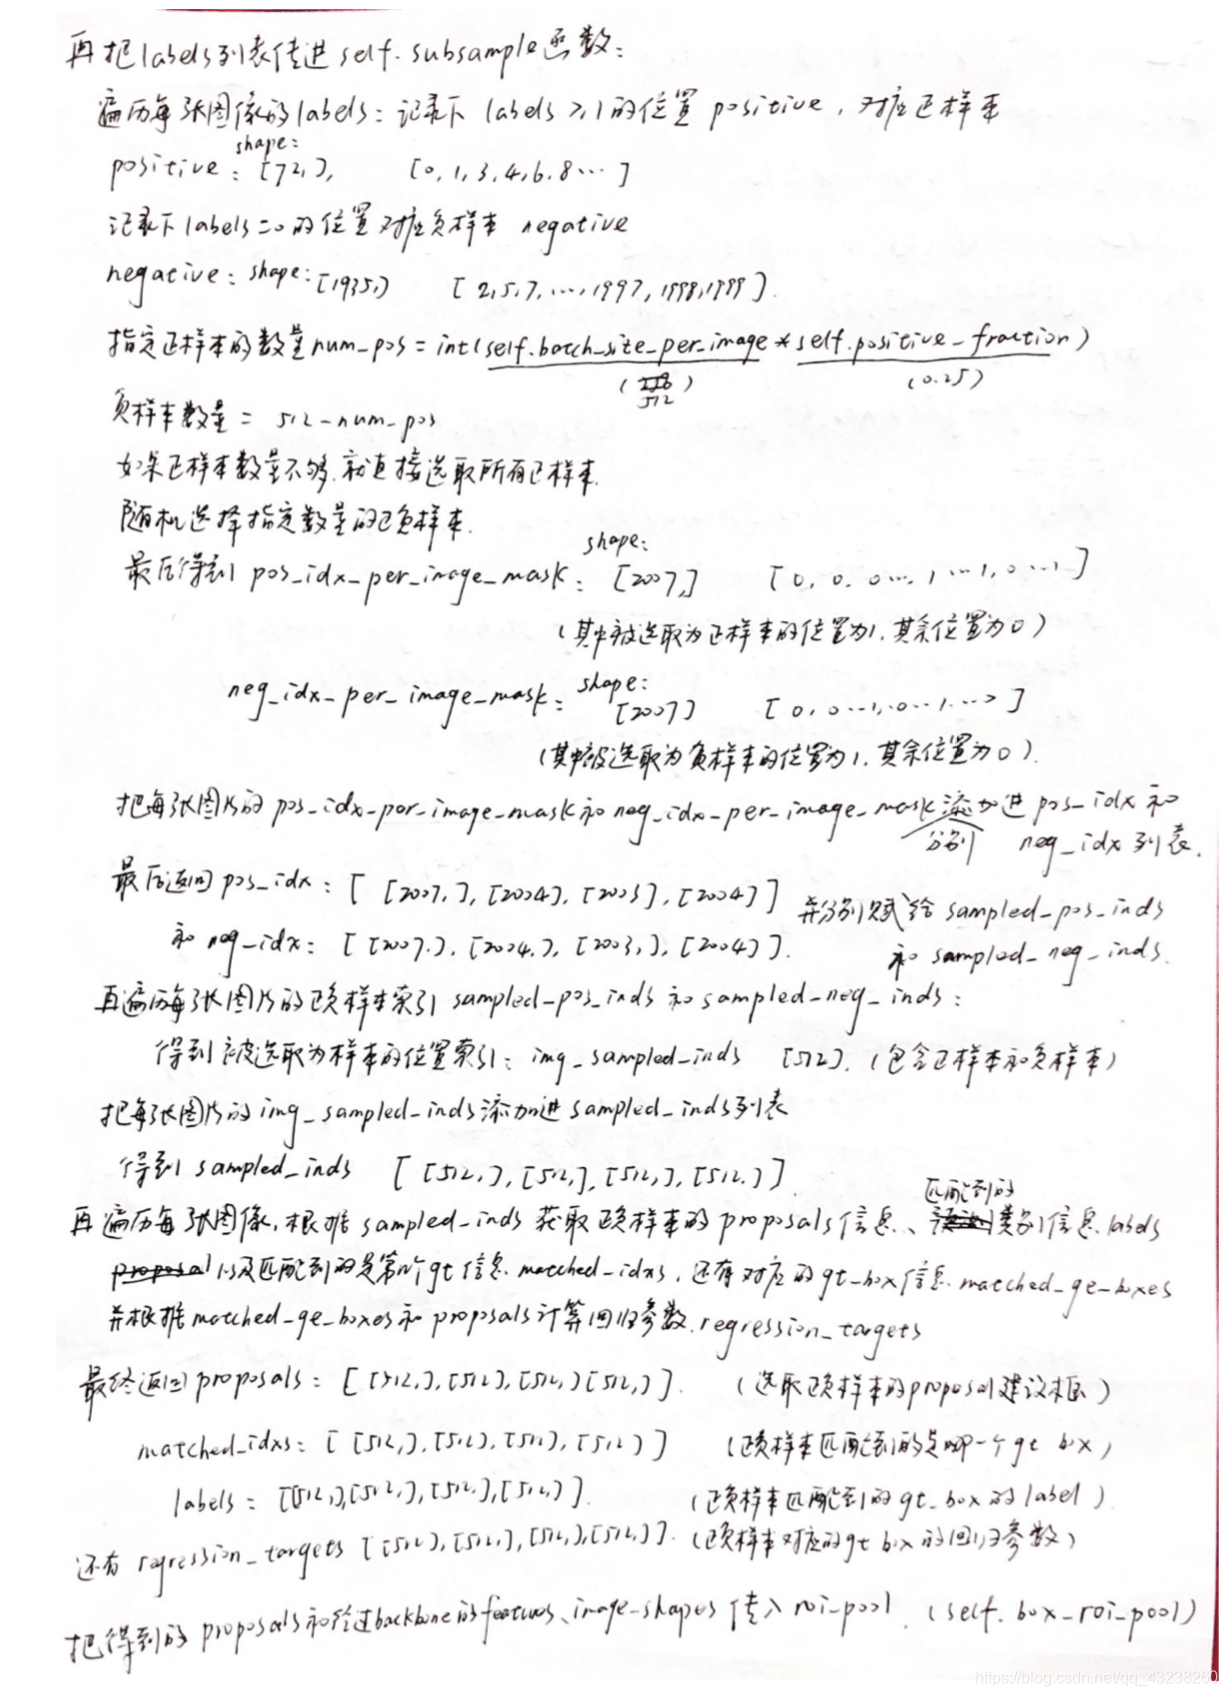 再把labels列表传进self.subsample函数:
遍历每张图像的labels:记录下 labels ≥1的位置 positive,对应正样本
shape:
positive: [72,), [0,1,3,4,6,8...]
记录下labels=0的位置对应负样本 negative
negative: shape:[1935,) [2,5,7,...,1997,1998,1999].
指定正样本的数量num_pos = int(self.batch_size_per_image * self.positive_fraction)
(512) (0.25)
负样本数量 = 512-num_pos
如果正样本数量不够,就直接选取所有正样本.
随机选择指定数量的正负样本.
shape:
最后得到 pos_idx_per_image_mask: [2007,] [0,0,0...,1...1,0...]
(其中被选取为正样本的位置为1,其余位置为0)
neg_idx_per_image_mask: shape: [2007] [0,0...1,0...1...]
(其中被选取为负样本的位置为1,其余位置为0).
把每张图片的 pos_idx_per_image_mask和neg_idx_per_image_mask添加进 pos_idx 和
分别 neg_idx 列表.
最后返回 pos_idx: [ [2007,], [2004], [2003], [2004] ] 并分别赋给 sampled_pos_inds
和 neg_idx: [ [2007,], [2004,], [2003,], [2004] ]. 和 sampled_neg_inds.
再遍历每张图片的正负样本索引 sampled_pos_inds 和 sampled_neg_inds:
得到被选取为样本的位置索引: img_sampled_inds [512]. (包含正样本和负样本)
把每张图片的 img_sampled_inds添加进 sampled_inds列表
得到 sampled_inds [ [512,), [512,], [512,), [512,) ].
匹配到的
再遍历每张图像,根据 sampled_inds 获取正负样本的 proposals信息、类别信息 labels
以及匹配到的是第几个gt信息 matched_idxs,还有对应的 gt_box信息 matched_ge_boxes
并根据matched_ge_boxes和 proposals计算回归参数.regression_targets
最终返回 proposals: [ [512,), [512), [512,) [512,) ]. (选取正负样本的proposal建议框)
matched_idxs: [ [512,), [512), [512), [512) ] (正负样本匹配到的是哪一个 gt box)
labels: [[512,),[512,),[512,),[512,)]. (正负样本匹配到的gt_box 的label)
还有 regression_targets [[512),[512,),[512,),[512,)]. (正负样本对应的gt box的回归参数)
把得到的 proposals和经过backbone的features、image_shapes 传入 roi_pool. (self.box_roi_pool)
https://blog.csdn.net/qq_43238260